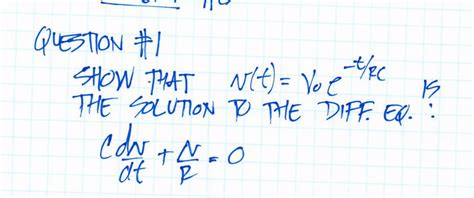 QUESTION #1
SHOW THAT v(t) = V₀ e^{-t/RC} IS
THE SOLUTION TO THE DIFF. EQ. :
C dv/dt + v/R = 0